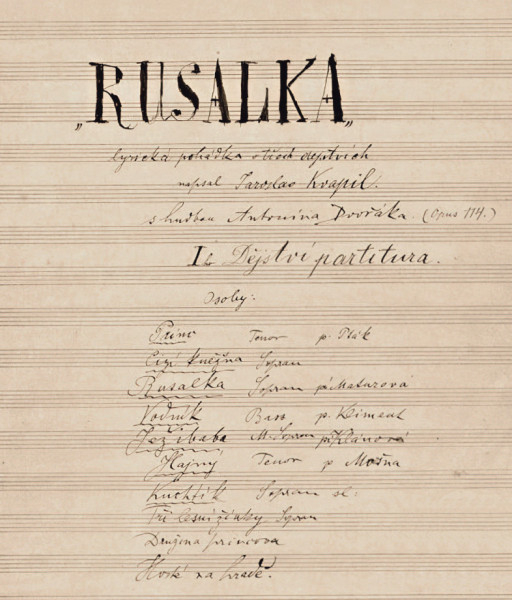 „RUSALKA“
lyrická pohádka o třech dějstvích
napsal Jaroslav Kvapil.
s hudbou Antonína Dvořáka. (Opus 114.)
I. Dějství partitura.
Osoby:
Princ Tenor p. Pták
Cizí kněžna Sopran
Rusalka Sopran pí Maturová
Vodník Bass p. Kliment
Ježibaba M. Sopran
Hajný Tenor p Mošna
Kuchtík Sopran sl:
Tři lesní žínky Sopran
Družina princova
Hosté na hradě.